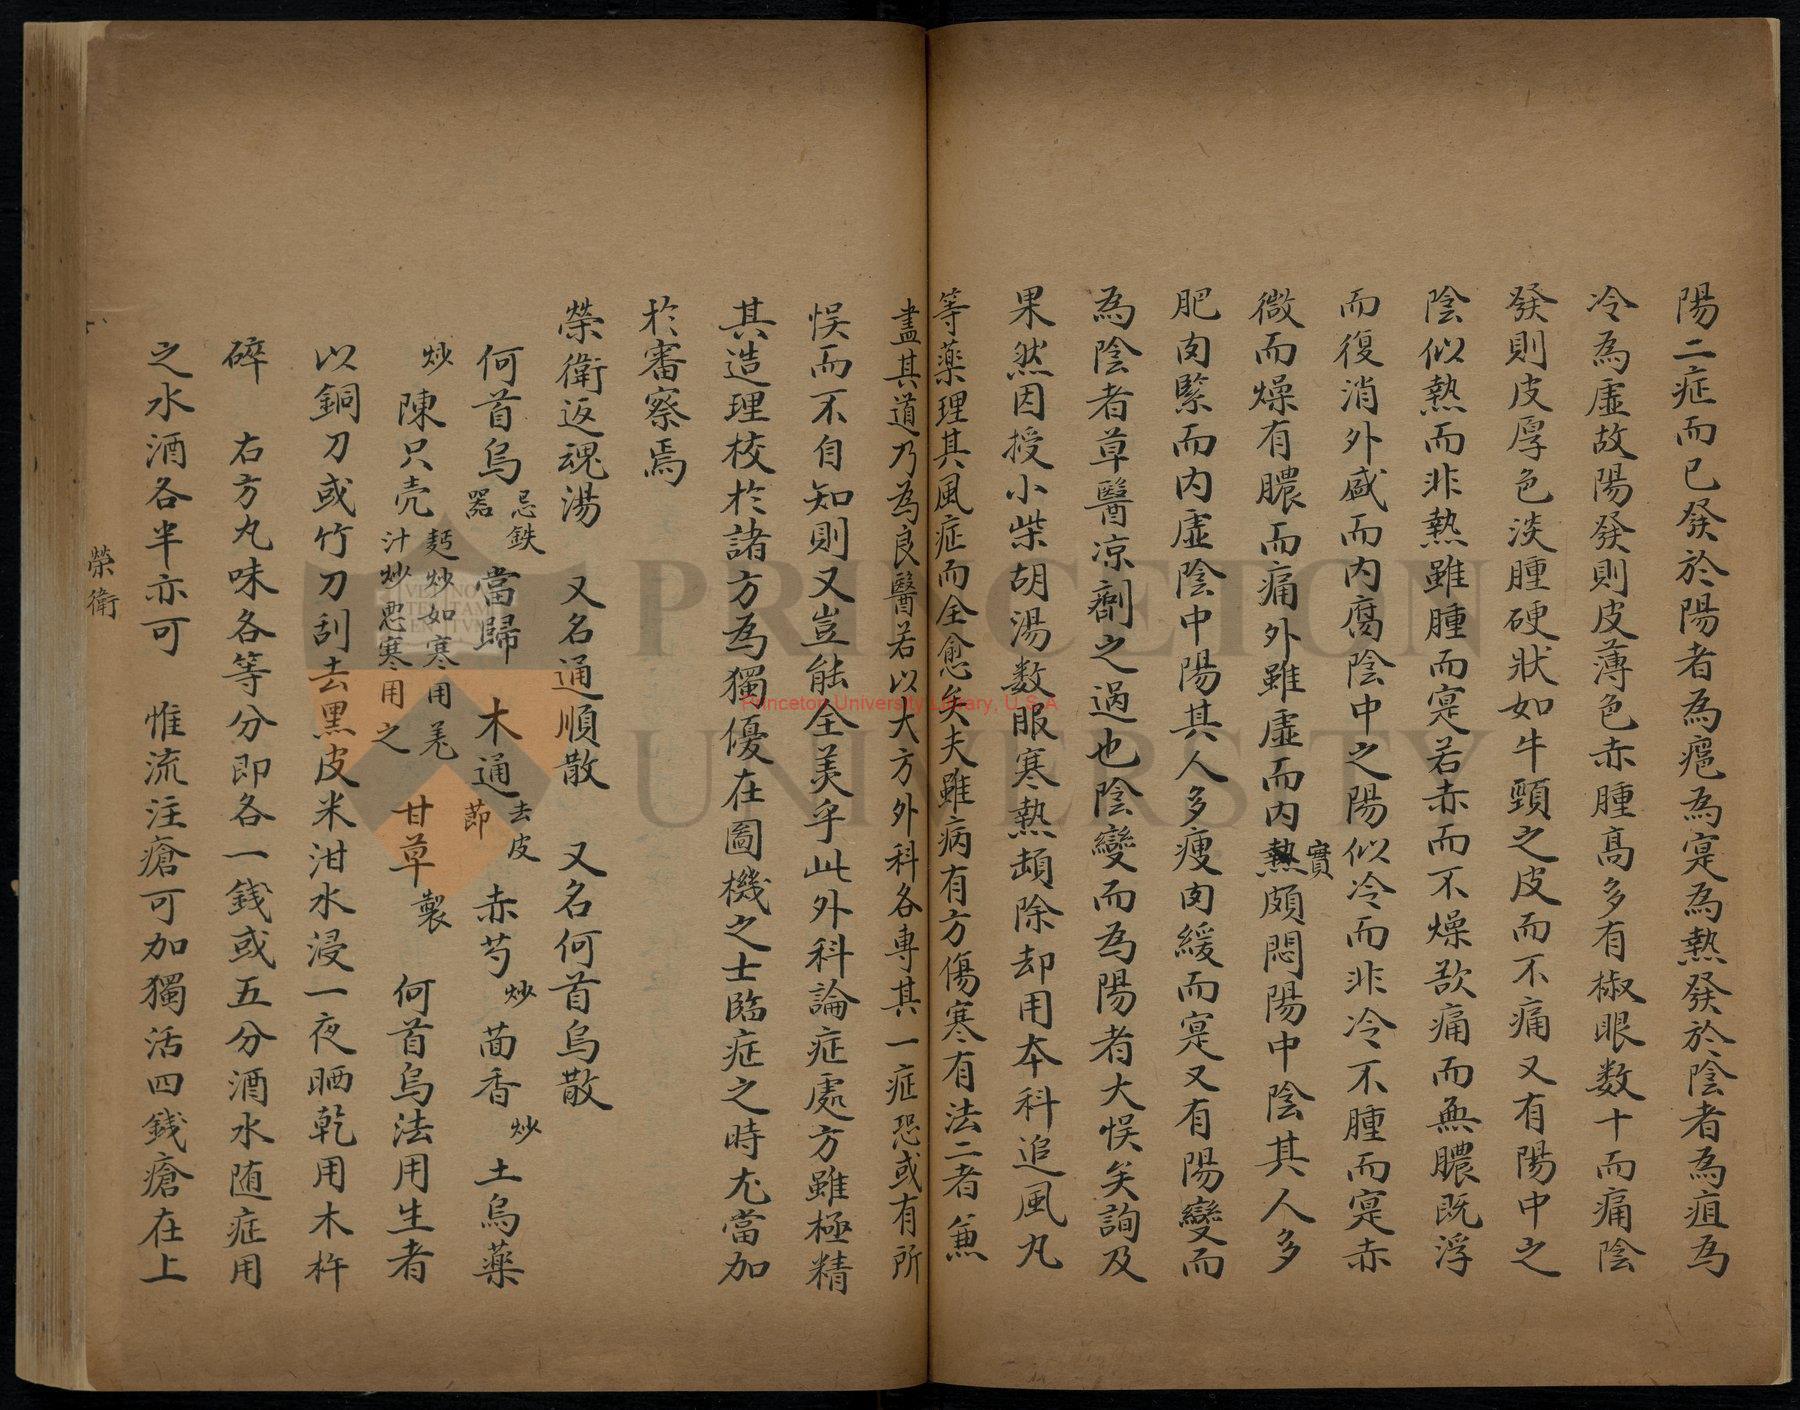 陽二症而已發於陽者為癰為寔為熱發於陰者為疽為
冷為虛故陽發則皮薄色赤腫高多有椒眼数十而痛陰
發則皮厚色淡腫硬狀如牛頸之皮而不痛又有陽中之
陰似熱而非熱雖腫而寔若赤而不燥欲痛而無膿既浮
而復消外盛而内腐陰中之陽似冷而非冷不腫而寔赤
微而燥有膿而痛外雖虛而内熱實頗悶陽中陰其人多
肥肉緊而内虛陰中陽其人多瘦肉緩而寔又有陽變而
為陰者草醫凉劑之過也陰變而為陽者大悞矣詢及
果然因授小柴胡湯数服寒熱頓除却用本科追風丸
等藥理其風症而全愈矣夫雖病有方傷寒有法二者兼
盡其道乃為良醫若以大方外科各專其一症恐或有所
悞而不自知則又豈能全美乎此外科論症處方雖極精
其造理校於諸方為獨優在圖機之士臨症之時尤當加
於審察焉
榮衛返魂湯 又名通順散 又名何首烏散
何首烏忌鉄器 當歸 木通去皮節 赤芍炒 茴香炒 土烏藥
炒 陳只壳麫炒如寒用羌汁炒惡寒用之 甘草製 何首烏法用生者
以銅刀或竹刀刮去黑皮米泔水浸一夜晒乾用木杵
碎 右方丸味各等分即各一錢或五分酒水随症用
之水酒各半亦可 惟流注瘡可加獨活四錢瘡在上
榮衛
PRINCETON
UNIVERSITY
Princeton University Library, U.S.A